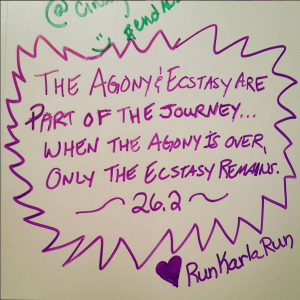 @Cindy
#end
THE AGONY & ECSTASY ARE
PART OF THE JOURNEY...
WHEN THE AGONY IS OVER,
ONLY THE ECSTASY REMAINS.
~ 26.2 ~
RunKarlaRun